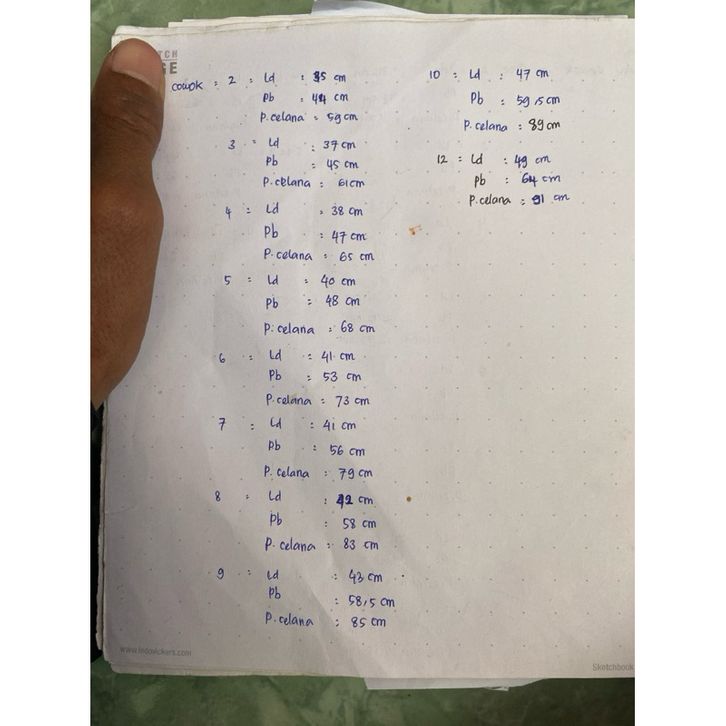 TCH
GE
cowok : 2 : Ld : 35 cm
Pb : 44 cm
P.celana : 59 cm
3 : Ld : 37 cm
Pb : 45 cm
P.celana : 61 cm
4 : Ld : 38 cm
Pb : 47 cm
P.celana : 65 cm
5 : Ld : 40 cm
Pb : 48 cm
P.celana : 68 cm
6 : Ld : 41 cm
Pb : 53 cm
P.celana : 73 cm
7 : Ld : 41 cm
Pb : 56 cm
P.celana : 79 cm
8 : Ld : 42 cm
Pb : 58 cm
P.celana : 83 cm
9 : Ld : 43 cm
Pb : 58,5 cm
P.celana : 85 cm
10 : Ld : 47 cm
Pb : 59,5 cm
P.celana : 89 cm
12 : Ld : 49 cm
Pb : 64 cm
P.celana : 91 cm
www.indovickers.com
Sketchbook